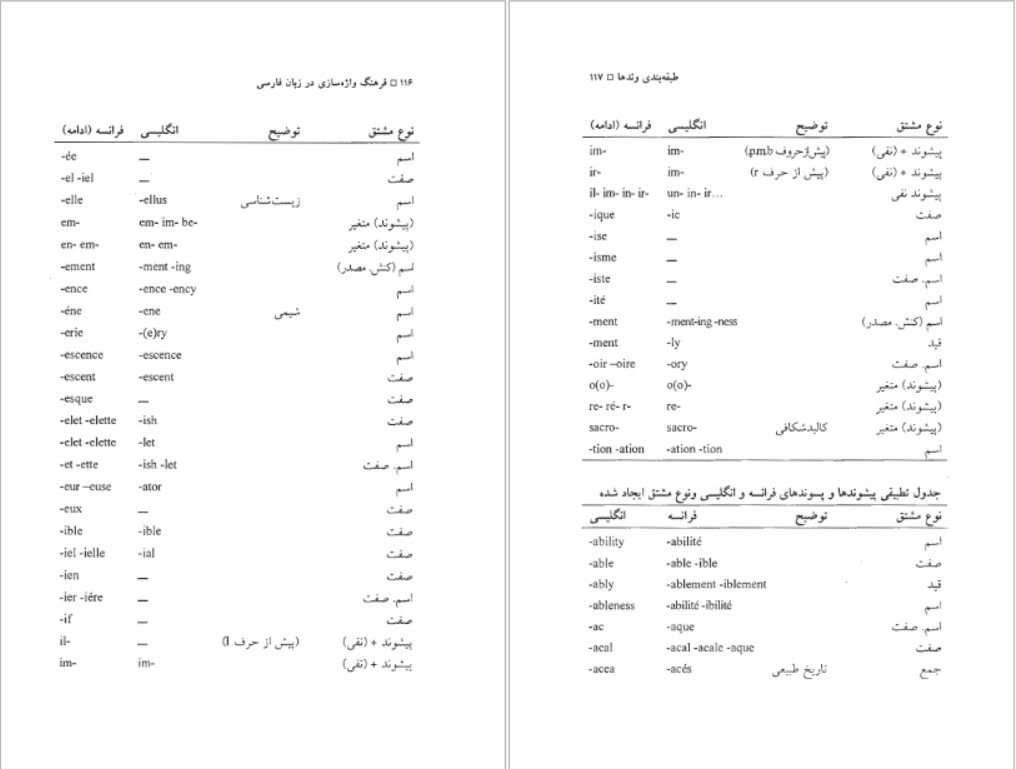 ۱۱۶ □ فرهنگ واژه‌سازی در زبان فارسی
نوع مشتق توضیح انگلیسی فرانسه (ادامه)
اسم — -ée
صفت — -el -iel
اسم زیست‌شناسی -ellus -elle
(پیشوند) متغیر em- im- be- em-
(پیشوند) متغیر en- em- en- em-
اسم (کنش، مصدر) -ment -ing -ement
اسم -ence -ency -ence
اسم شیمی -ene -éne
اسم -(e)ry -erie
اسم -escence -escence
صفت -escent -escent
صفت — -esque
صفت -ish -elet -elette
اسم -let -elet -elette
اسم، صفت -ish -let -et -ette
اسم -ator -eur –euse
صفت — -eux
صفت -ible -ible
صفت -ial -iel -ielle
صفت — -ien
اسم، صفت — -ier -iére
صفت — -if
پیشوند + (نفی) (پیش از حرف l) — il-
پیشوند + (نفی) im- im-
طبقه‌بندی وندها □ ۱۱۷
نوع مشتق توضیح انگلیسی فرانسه (ادامه)
پیشوند + (نفی) (پیش‌ازحروف p.m.b) im- im-
پیشوند + (نفی) (پیش از حرف r) im- ir-
پیشوند نفی un- in- ir... il- im- in- ir-
صفت -ic -ique
اسم — -ise
اسم — -isme
اسم، صفت — -iste
اسم — -ité
اسم (کنش، مصدر) -ment-ing -ness -ment
قید -ly -ment
اسم، صفت -ory -oir –oire
(پیشوند) متغیر o(o)- o(o)-
(پیشوند) متغیر re- re- ré- r-
(پیشوند) متغیر کالبدشکافی sacro- sacro-
اسم -ation -tion -tion -ation
جدول تطبیقی پیشوندها و پسوندهای فرانسه و انگلیسی ونوع مشتق ایجاد شده
نوع مشتق توضیح فرانسه انگلیسی
اسم -abilité -ability
صفت -able -ible -able
قید -ablement -iblement -ably
اسم -abilité -ibilité -ableness
اسم، صفت -aque -ac
صفت -acal -acale -aque -acal
جمع تاریخ طبیعی -acés -acea